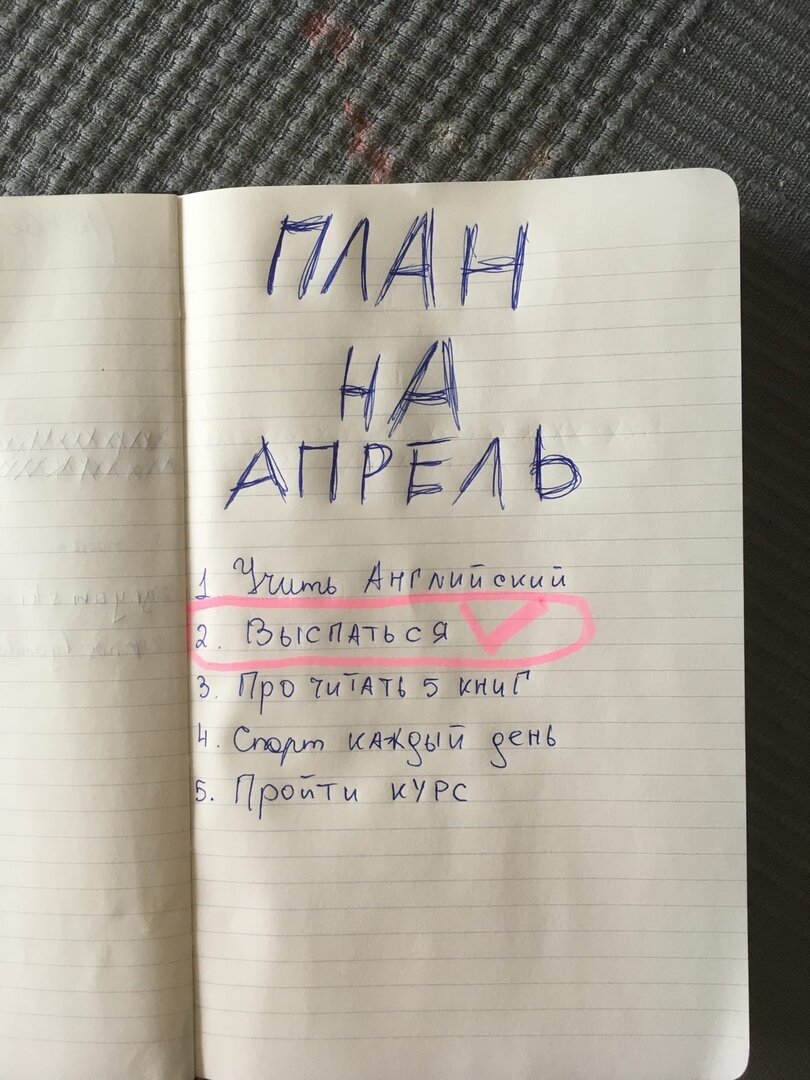 ПЛАН
НА
АПРЕЛЬ
1 Учить Английский
2. Выспаться
3. Прочитать 5 книг
4. Спорт каждый день
5. Пройти курс